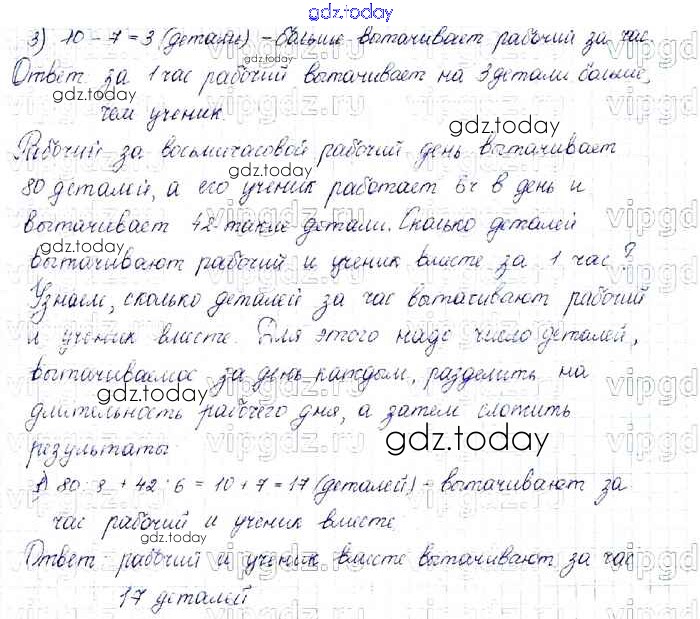 gdz.today
3) 10 - 7 = 3 (детали) - больше вытачивает рабочий за час.
Ответ за 1 час рабочий вытачивает на 3 детали больше,
gdz.today
чем ученик.
gdz.today
Рабочий за восьмичасовой рабочий день вытачивает
gdz.today
80 деталей, а его ученик работает 6ч в день и
вытачивает 42 такие детали. Сколько деталей
gdz.today
вытачивают рабочий и ученик вместе за 1 час?
Узнаем, сколько деталей за час вытачивают рабочий
и ученик вместе. Для этого надо число деталей,
вытачиваемое за день каждым, разделить на
gdz.today
длительность рабочего дня, а затем сложить
результаты
gdz.today
1) 80 : 8 + 42 : 6 = 10 + 7 = 17 (деталей) - вытачивают за
час рабочий и ученик вместе
Ответ рабочий и ученик вместе вытачивают за час
gdz.today
17 деталей